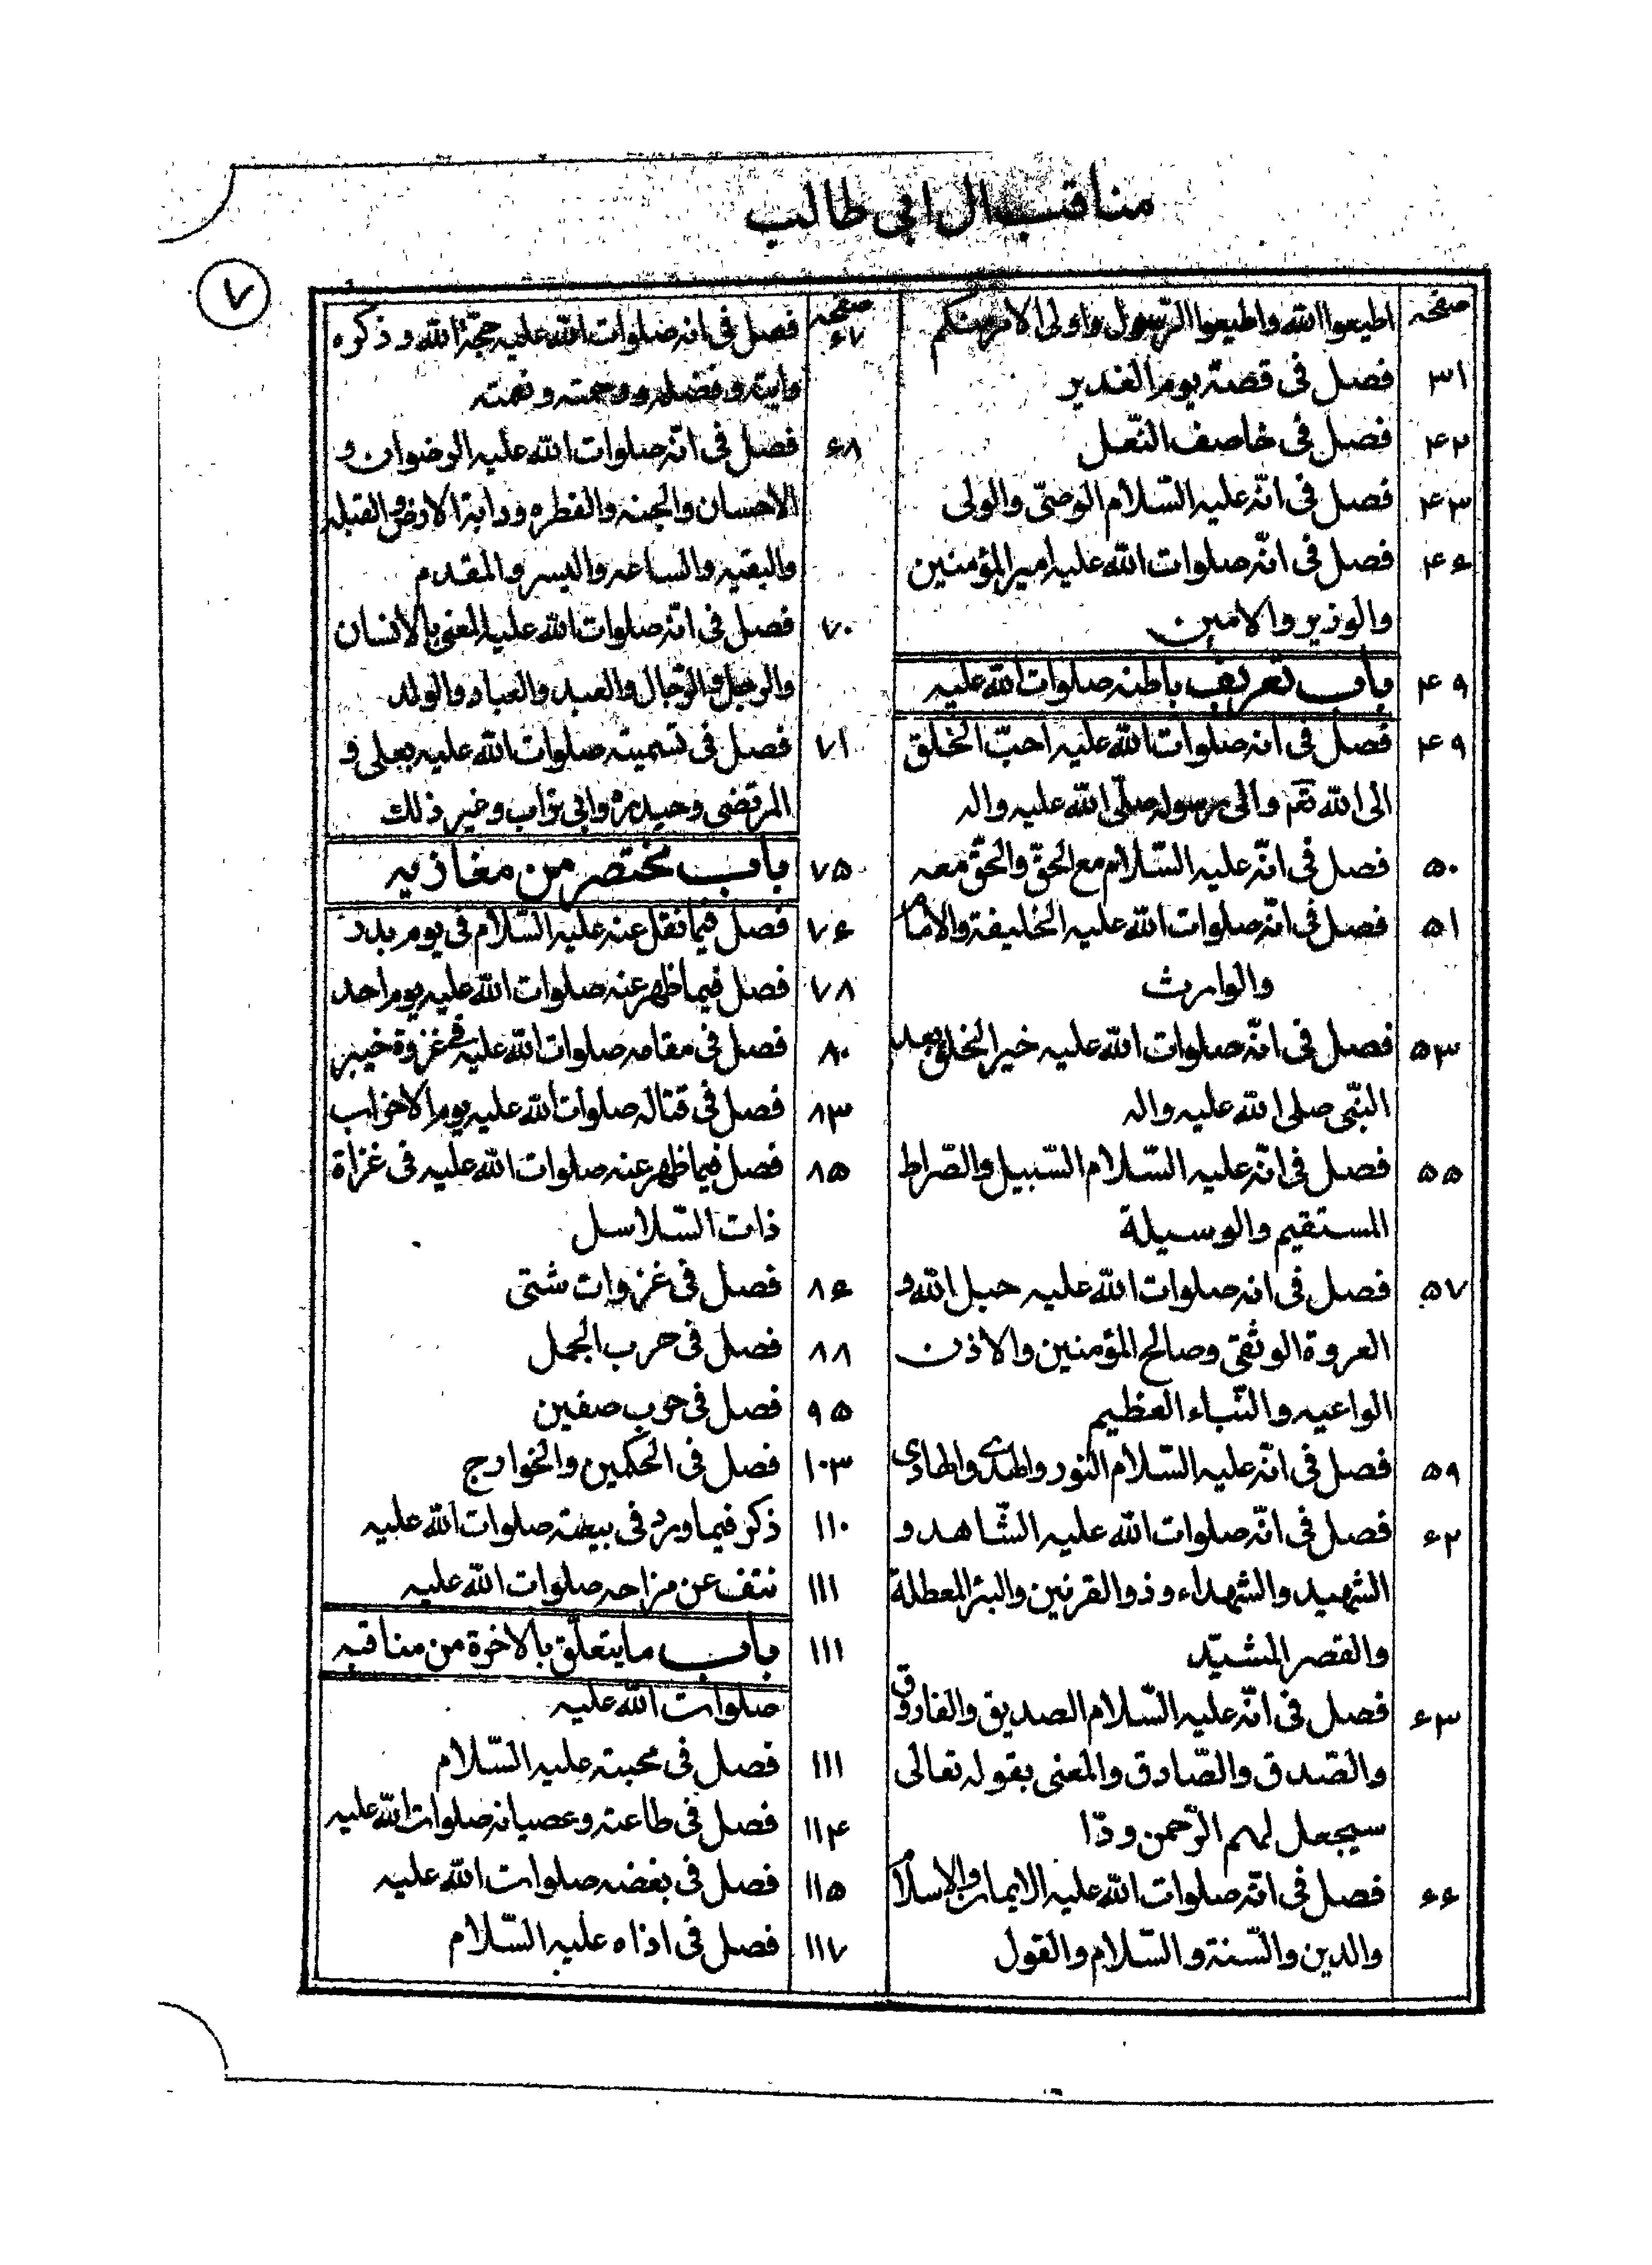 مناقب ال ابی طالب
۷
صفحه اطیعوا الله واطیعوا الرّسول واولی الامر منکم
۳۱ فصل فی قصة یوم الغدیر
۴۲ فصل فی خاصف النّعل
۴۳ فصل فی انّه علیه السّلام الوصیّ والولی
۴۶ فصل فی انّه صلوات الله علیه امیر المؤمنین
والوزیر والامین
۴۹ باب تعریف باطنه صلوات الله علیه
۴۹ فصل فی انه صلوات الله علیه احبّ الخلق
الی الله تعم والی رسوله صلّی الله علیه واله
۵۰ فصل فی انّه علیه السّلام مع الحقّ والحقّ معه
۵۱ فصل فی انّه صلوات الله علیه الخلیفة والامام
والوارث
۵۳ فصل فی انّه صلوات الله علیه خیر الخلق بعد
النّبی صلی الله علیه واله
۵۵ فصل فی انّه علیه السّلام السّبیل والصّراط
المستقیم والوسیلة
۵۷ فصل فی انه صلوات الله علیه حبل الله و
العروة الوثقی وصالح المؤمنین والاذن
الواعیه والنّباء العظیم
۵۹ فصل فی انّه علیه السّلام النور والهدی والهادی
۶۲ فصل فی انّه صلوات الله علیه الشّاهد و
الشهید والشهداء وذو القرنین والبئر المعطلة
والقصر المشیّد
۶۳ فصل فی انّه علیه السّلام الصدیق والفاروق
والصّدق والصّادق والمعنی بقوله تعالی
سیجعل لهم الرّحمن ودّا
۶۶ فصل فی انّه صلوات الله علیه الایمان والاسلام
والدین والسّنة والسّلام والقول
صفحه
۶۷ فصل فی انه صلوات الله علیه حجّة الله وذکره
وایته وفضله ورحمته ونعمته
۶۸ فصل فی انّه صلوات الله علیه الرضوان و
الاحسان والجنة والفطره ودابة الارض والقبله
والبقیه والساعه والیسر والمقدم
۷۰ فصل فی انّه صلوات الله علیه المعنی بالانسان
والرجل والرّجال والعبد والعباد والولد
۷۱ فصل فی تسمیته صلوات الله علیه بعلی و
المرتضی وحیدره وابی تراب وغیر ذلک
۷۵ باب مختصر من مغازیه
۷۶ فصل فیما نقل عنه علیه السّلام فی یوم بدر
۷۸ فصل فیما ظهر عنه صلوات الله علیه یوم احد
۸۰ فصل فی مقامه صلوات الله علیه فی غزوة خیبر
۸۳ فصل فی قتاله صلوات الله علیه یوم الاحزاب
۸۵ فصل فیما ظهر عنه صلوات الله علیه فی غزاة
ذات السّلاسل
۸۶ فصل فی غزوات شتی
۸۸ فصل فی حرب الجمل
۹۵ فصل فی حرب صفین
۱۰۳ فصل فی الحکمین والخوارج
۱۱۰ ذکر فیما ورد فی بیعته صلوات الله علیه
۱۱۱ نتف عن مزاحه صلوات الله علیه
۱۱۱ باب ما یتعلّق بالاخرة من مناقبه
صلوات الله علیه
۱۱۱ فصل فی محبته علیه السّلام
۱۱۴ فصل فی طاعته وعصیانه صلوات الله علیه
۱۱۵ فصل فی بغضه صلوات الله علیه
۱۱۷ فصل فی اذاه علیه السّلام